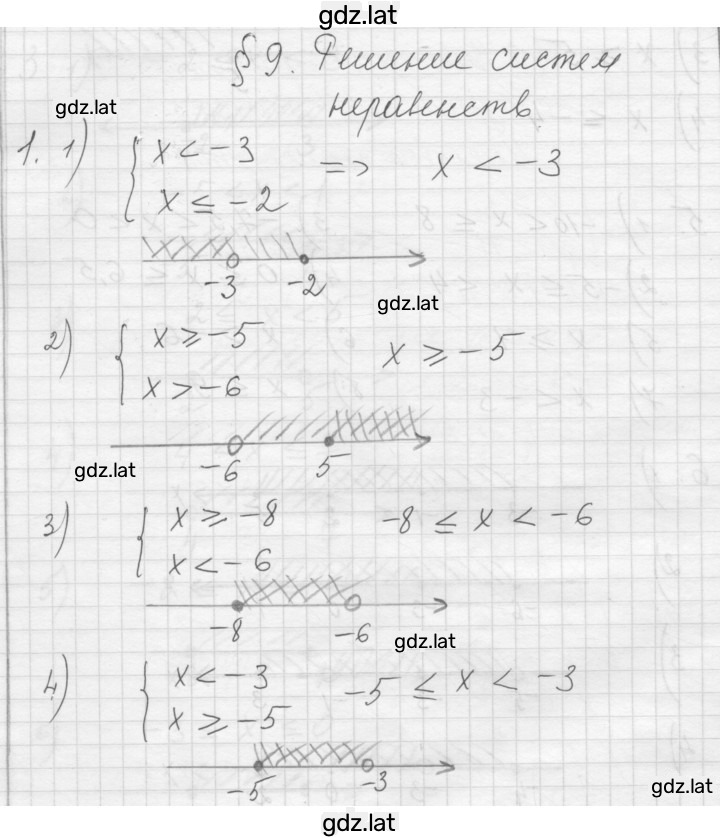 gdz.lat
§ 9. Решение систем
неравенств
gdz.lat
1. 1) { x < -3
x ≤ -2
=> x < -3
-3 -2
gdz.lat
2) { x ≥ -5
x > -6
x ≥ -5
-6 5
gdz.lat
3) { x ≥ -8
x < -6
-8 ≤ x < -6
-8 -6
gdz.lat
4) { x < -3
x ≥ -5
-5 ≤ x < -3
-5 -3
gdz.lat
gdz.lat